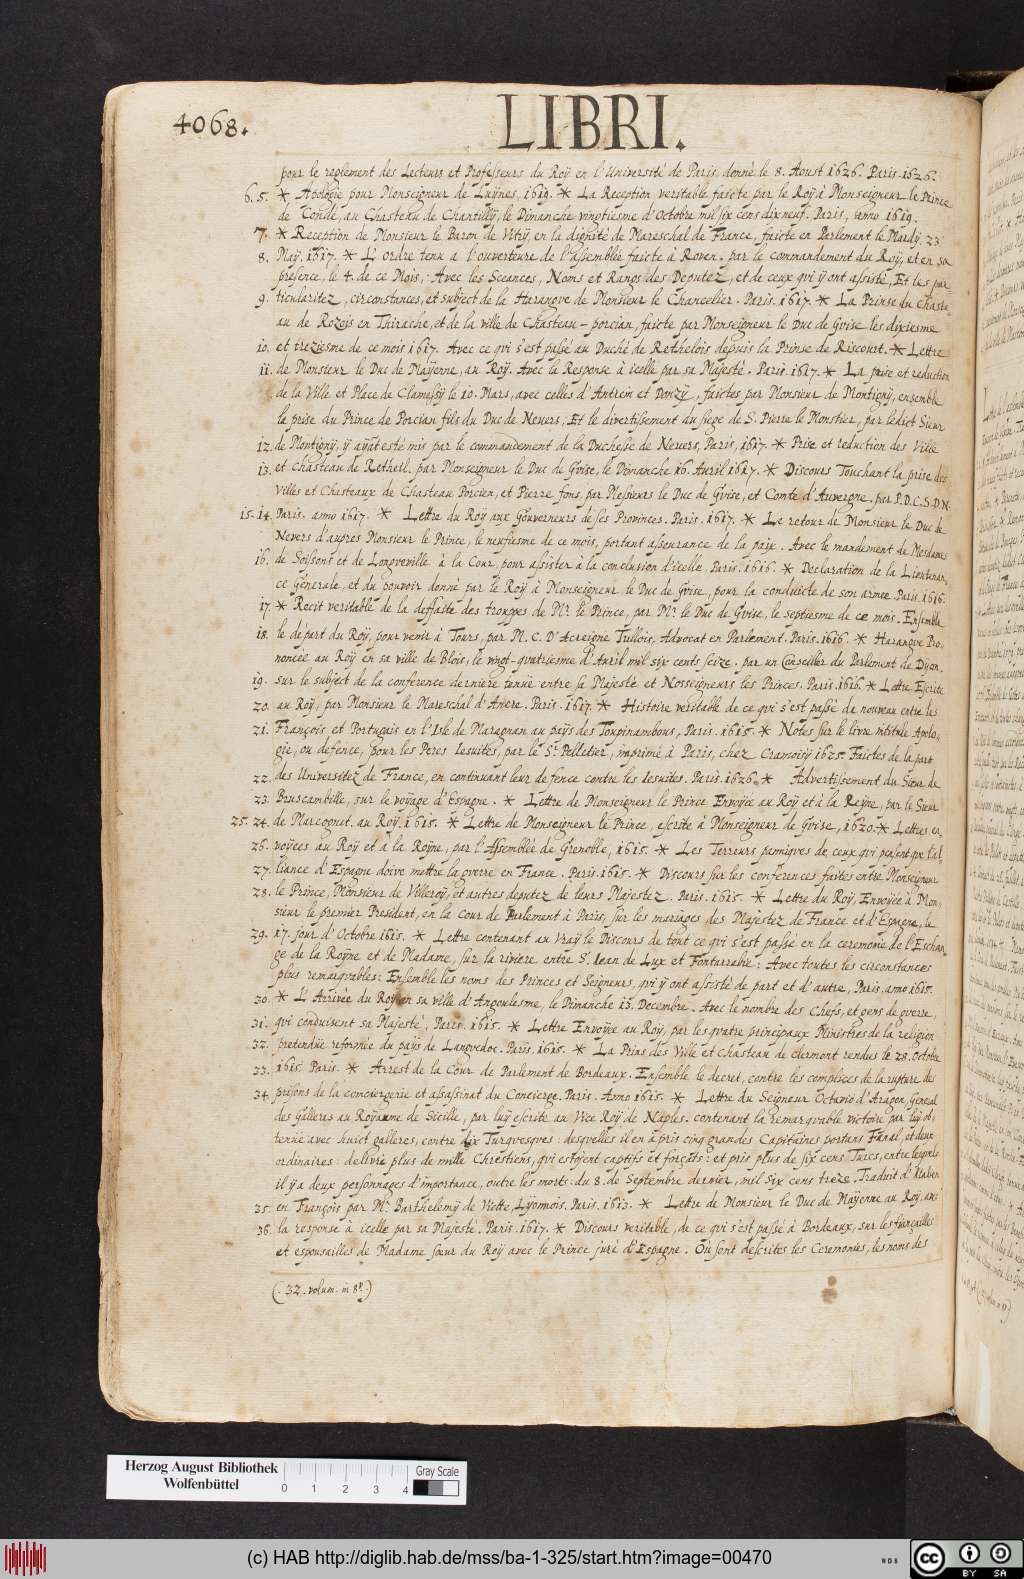 4068.
LIBRI.
pour le reglement des Lecteurs et Professeurs du Roÿ en l'Université de Paris, donné le 8. Aoust 1626. Paris. 1626.
6. 5. * Apologie pour Monseigneur de Luÿnes, 1619. * La Reception veritable faicte par le Roÿ à Monseigneur le Prince
de Condé, au Chasteau de Chantillÿ, le Dimanche vingtiesme d'Octobre mil six cens dixneuf. Paris, anno 1619.
7. * Reception de Monsieur le Baron de Vitrÿ, en la dignité de Mareschal de France, faicte en Parlement le Mardÿ, 23
8. Maÿ. 1617. * L'ordre tenu a l'ouverteure de l'assemblée faicte à Roven. par le commandement du Roÿ, et en sa
presence, le 4. de ce Mois, Avec les Sceances, Noms et Rangs des Deputez, et de ceux qui ÿ ont assisté, Et les par
9. ticularitez, circonstances, et subject de la Harangve de Monsieur le Chancellier. Paris. 1617. * La Prinse du Chaste
au de Rozois en Thirache, et de la ville de Chasteau-porcian, faicte par Monseigneur le Duc de Gvise les dixiesme
10. et treziesme de ce mois 1617. Avec ce qvi s'est passé au Duché de Rethelois depuis la Prinse de Riscourt. * Lettre
11. de Monsieur le Duc de Maÿenne, au Roÿ. Avec la Response à icelle par sa Majesté. Paris. 1617. * La prise et reduction
de la Ville et Place de Clamessÿ le 10. Mars, avec celles d'Antrein et Donzÿ, faictes par Monsieur de Montignÿ, ensemble
la prise du Prince de Porcian fils du Duc de Nevers, Et le divertissement du siege de S. Pierre le Monstier, par ledict Sieur
12. de Montignÿ, ÿ aÿāt esté mis par le commandement de la Duchesse de Nevers, Paris, 1617. * Prise et reduction des Ville
13. et Chasteau de Retheil, par Monseigneur le Duc de Gvise, le Dimanche 16. Avril 1617. * Discours Touchant la prise des
Villes et Chasteaux de Chasteau Porcien, et Pierre fons, par Messieurs le Duc de Gvise, et Comte d'Auvergne. par P.D.C.S.D.N.
15. 14. Paris. anno 1617. * Lettre du Roÿ aux Gouverneurs de ses Provinces. Paris. 1617. * Le retour de Monsieur le Duc de
Nevers d'aupres Monsieur le Prince, le neufiesme de ce mois, portant asseurance de la paix. Avec le mandement de Mesdames
16. de Soissons et de Longveville à la Cour, pour assister à la conclusion d'icelle. Paris. 1616. * Declaration de la Lieutenan,
ce Generale, et du pouvoir donné par le Roÿ à Monseigneur le Duc de Gvise, pour la conduicte de son armee. Paris. 1616.
17. * Recit veritable de la deffaite des trouppes de Mr. le Prince, par Mr. le Duc de Gvise, le septiesme de ce mois. Ensemble
18. le départ du Roÿ, pour venir à Tours, par M. C. D'Acreigne Tullois, Advocat en Parlement. Paris. 1616. * Harangve Pro,
noncée au Roÿ en sa ville de Blois, le vingt-qvatriesme d'Avril mil six cents seize. par un Conseiller du Parlement de Dÿon,
19. sur le subject de la conference derniere tenüe entre sa Majesté et Nosseigneurs les Princes. Paris. 1616. * Lettre Escrite
20. au Roÿ, par Monsieur le Mareschal d'Ancre. Paris. 1617. * Histoire veritable de ce qvi s'est passé de nouveau entre les
21. François et Portugais en l'Isle de Maragnan au paÿs des Toupinambous, Paris. 1615. * Notes sur le livre intitulé Apolo,
gie, ou defence, pour les Peres Iesuites, par le Sr. Pelletier, imprimé à Paris, chez Cramoisÿ 1625. Faictes de la part
22. des Universitez de France, en continuant leur defence contre les Iesuites. Paris. 1626. * Advertissement du Sieur de
23. Bruscambille, sur le voÿage d'Espagne. * Lettre de Monseigneur le Prince Envoÿée au Roÿ et à la Reÿne, par le Sieur
25. 24. de Marcognet. au Roÿ. 1615. * Lettre de Monseigneur le Prince, escrite à Monseigneur de Gvise, 1620. * Lettres en,
26. voÿees au Roÿ et à la Roÿne, par l'Assemblée de Grenoble, 1615. * Les Terreurs panniqves de ceux qvi pensent qve l'al,
27. liance d'Espagne doive mettre la gverre en France. Paris. 1615. * Discours sur les conferences faites entre Monseigneur
28. le Prince, Monsieur de Villeroÿ, et autres deputez de leurs Majestez. Paris. 1615. * Lettre du Roÿ, Envoÿée à Mon,
sieur le premier President, en la Cour de Parlement à Paris, sur les mariages des Majestez de France et d'Espagne, le
29. 17. jour d'Octobre 1615. * Lettre contenant au vraÿ le Discours de tout ce qvi s'est passé en la ceremonie de l'Eschan,
ge de la Roÿne et de Madame, sur la riviere entre S. Iean de Lux et Fontarrabie: Avec toutes les circonstances
plus remarqvables: Ensemble les noms des Princes et Seigneurs, qvi ÿ ont assisté de part et d'autre, Paris. anno 1615.
30. * L'Arrivée du Roÿ en sa ville d'Angoulesme, le Dimanche 13. Decembre. Avec le nombre des Chefs, et gens de gverre,
31. qvi conduisent sa Majesté, Paris. 1615. * Lettre Envoÿée au Roÿ, par les qvatre principaux Ministres de la religion
32. pretendüe reformée du paÿs de Langvedoc. Paris. 1615. * La Prins des Ville et Chasteau de Clermont rendus le 28. Octobre
33. 1615. Paris. * Arrest de la Cour de Parlement de Bordeaux. Ensemble le decret, contre les complices de la rupture des
34. prisons de la conciergerie et assassinat du Concierge. Paris. Anno 1615. * Lettre du Seigneur Octavio d'Aragon, General
des Galleres au Roÿaume de Sicille, par luÿ escrite au Vice Roÿ de Naples. contenant la remarqvable victoire par luÿ ob,
tenüe avec huict galleres, contre dix Turqvesqves: desqvelles il en a pris cinq grandes Capitaines portans Fanal, et deux
ordinaires: delivré plus de mille Chrestiens, qvi estoÿent captifs et forçats: et pris plus de six cens Turcs, entre lesqvels
il ÿ a deux personnages d'importance, outre les morts: du 8. de Septembre dernier, mil six cens treze. Traduit d'Italien
35. en François par Mr. Barthelemÿ de Viette, Lÿonnois. Paris. 1613. * Lettre de Monsieur le Duc de Maÿenne au Roÿ. avec
36. la response à icelle par sa Majesté. Paris. 1617. * Discours veritable, de ce qvi s'est passé à Bordeaux, sur les fiançailles
et espousailles de Madame sœur du Roÿ avec le Prince juré d'Espagne. Où sont descrites les Ceremonies, les noms des
(. 32. volum. in 8°.)
Herzog August Bibliothek
Wolfenbüttel
0 1 2 3 4
Gray Scale
(c) HAB http://diglib.hab.de/mss/ba-1-325/start.htm?image=00470
WDB
cc BY SA